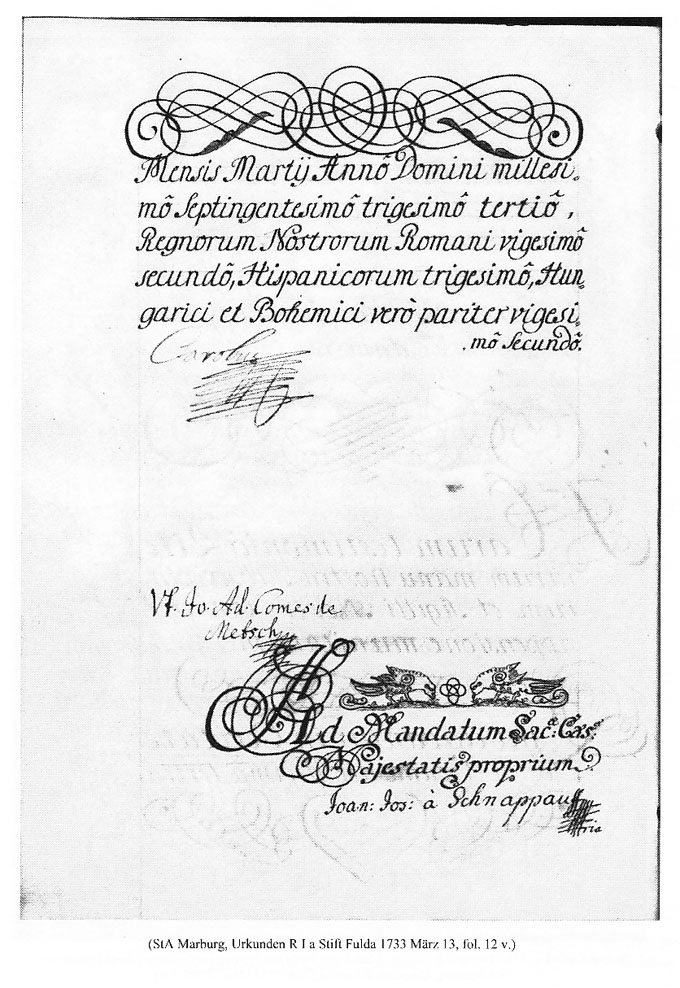 Mensis Martij Annô Domini millesi,
mô Septingentesimô trigesimô tertiô,
Regnorum Nostrorum Romani vigesimô
secundô, Hispanicorum trigesimô, Hun,
garici et Bohemici verò pariter vigesi,
mô secundô.
Carolus
Vt. Jo. Ad. Comes de
Metsch
Ad Mandatum Sac.æ Cæs.æ
Majestatis proprium
Joan: Jos: à Schnappauff
(StA Marburg, Urkunden R I a Stift Fulda 1733 März 13, fol. 12 v.)